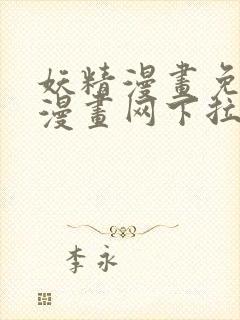 妖精漫畫免
漫畫网下拉
李永